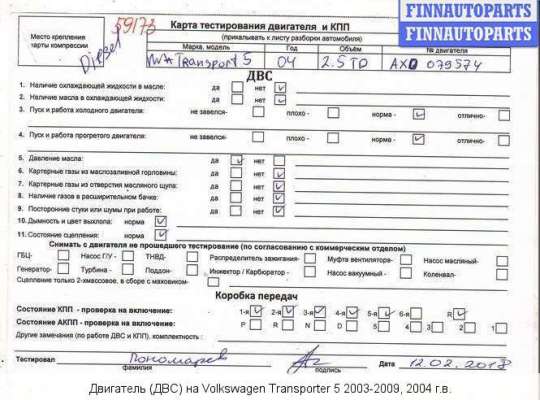 FINNAUTOPARTS
FINNAUTOPARTS
59173
Место крепления карты компрессии
Diesel
Карта тестирования двигателя и КПП
(прикалывать к листу разборки автомобиля)
Марка, модель Год Объём № двигателя
Transport 5 04 2.5 TD AXD 079574
ДВС
1. Наличие охлаждающей жидкости в масле: да нет
2. Наличие масла в охлаждающей жидкости: да нет
3. Пуск и работа холодного двигателя: не завелся- плохо - норма - отлично-
4. Пуск и работа прогретого двигателя: не завелся- плохо - норма - отлично-
5. Давление масла: да нет
6. Картерные газы из маслозаливной горловины: да нет
7. Картерные газы из отверстия масляного щупа: да нет
8. Наличие газов в расширительном бачке: да нет
9. Посторонние стуки или шумы при работе: да нет
10. Дымность и цвет выхлопа: норма
11. Состояние сцепления: норма
Снимать с двигателя не прошедшего тестирование (по согласованию с коммерческим отделом)
ГБЦ- Насос Г/У - ТНВД- Распределитель зажигания- Муфта вентилятора- Насос масляный-
Генератор- Турбина - Поддон- Инжектор / Карбюратор - Насос вакуумный - Коленвал-
Сцепление только 2-хмассовое, в сборе с маховиком-
Коробка передач
Состояние КПП - проверка на включение: 1-я 2-я 3-я 4-я 5-я 6-я R
Состояние АКПП - проверка на включение: P R N D 5 4 3 2 1
Другие замечания (по работе ДВС и КПП), комплектность :
Тестировал Пономарев Дата 12.02.2018
фамилия подпись
Двигатель (ДВС) на Volkswagen Transporter 5 2003-2009, 2004 г.в.